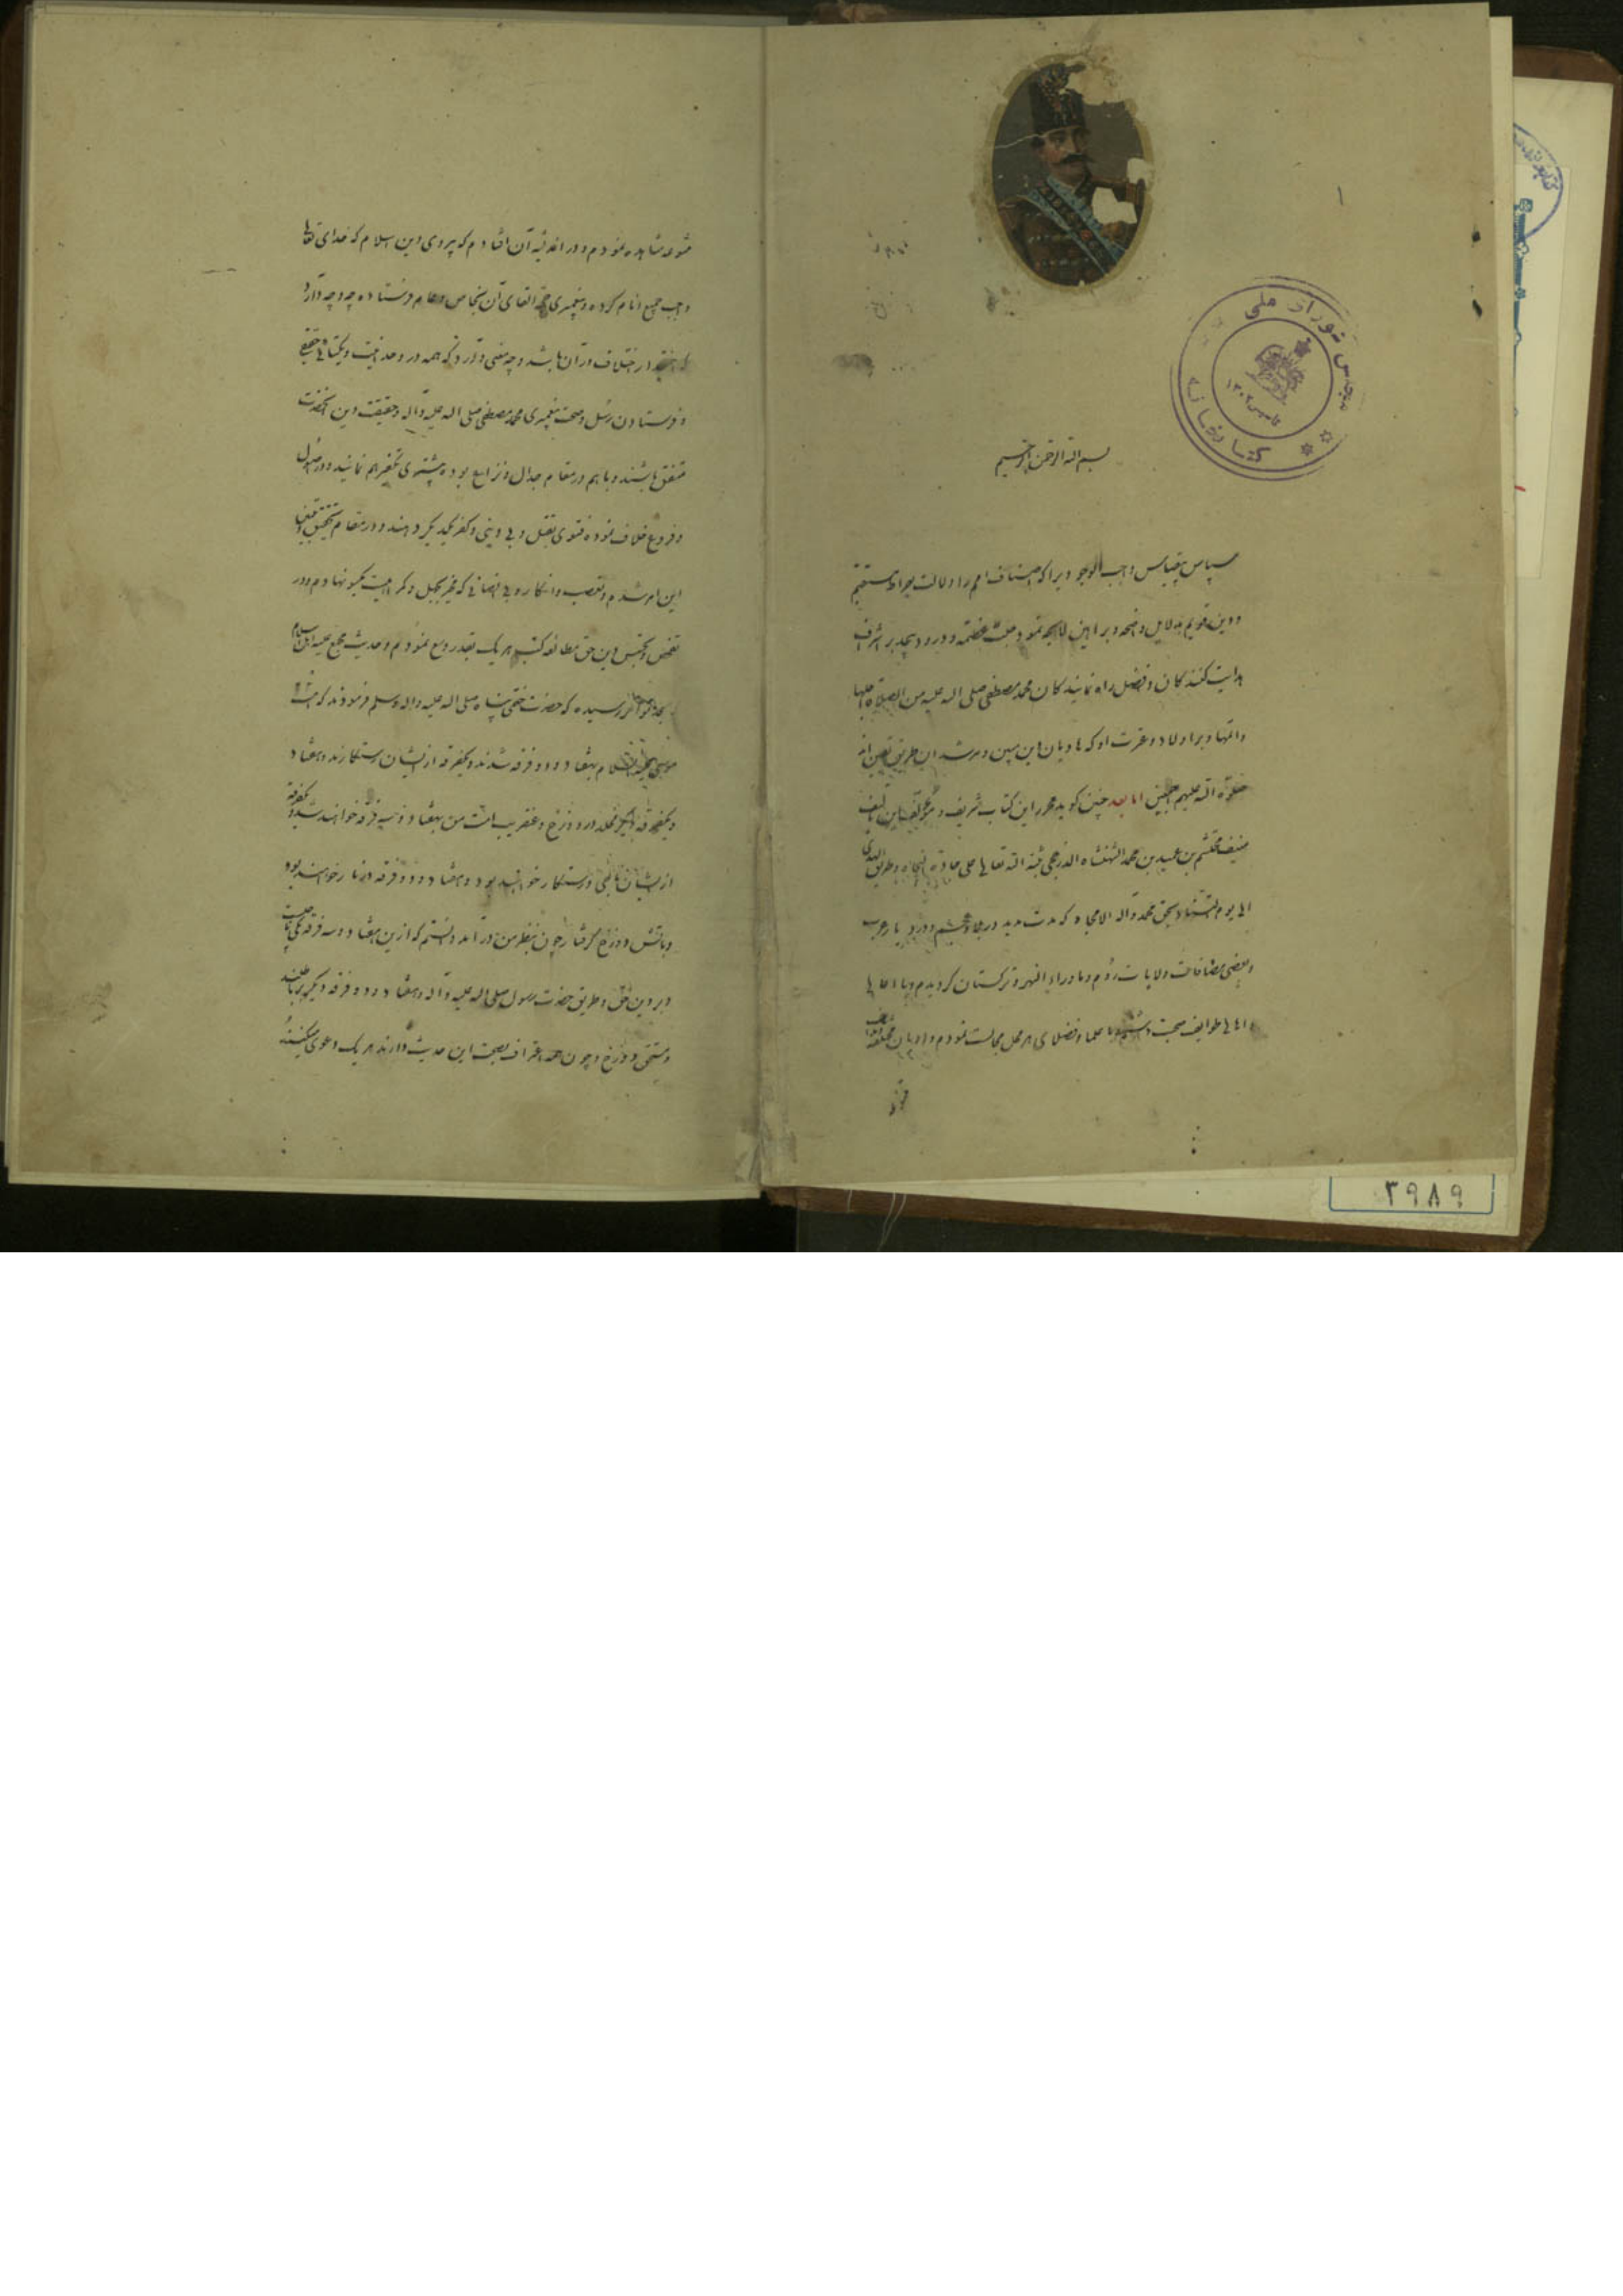 ۱
مجلس شورای ملی
کتابخانه
بسم الله الرحمن الرحیم
سپاس بیقیاس واجب الوجودیرا که اصناف امم را دلالت بصراط مستقیم
و دین قویم بدلایل واضحه و براهین لایحه نمود جلت عظمته و درود بیحد بر اشرف
هدایت کنندکان و افضل راه نمایندکان محمد مصطفی صلی الله علیه من الصلاة
و بر اولاد و عترت او که هادیان دین مبین و مرشدان طریق یقین اند
صلوة الله علیهم اجمعین اما بعد چنین کوید محرر این کتاب شریف و مؤلف این تالیف
منیف محتشم بن عمید بن محمد الله تعالی علی جادة النجاة و طریق الهدی
الی یوم التناد بحق محمد و اله الامجاد که مدت مدید در و در دیار عرب
و بعضی مضافات ولایات روم و ماوراء النهر و ترکستان کردیدم و با اعالی
و اهالی طوایف صحبت داشتم و با علما و فضلای هر محل مجالست نمودم و ادیان مختلفه
متنوعه مشاهده نمودم و در اندیشه آن افتادم که پیروی دین اسلام که خدای تعالی
واجب جمیع انام کرده و پیغمبری جهة القای آن بخاص و عام فرستاده چه وجه دارد
اختلاف در آن باشد و چه معنی دارد که همه در وحدانیت و یکتائی حقتعالی
و فرستادن رسل و صحت پیغمبری محمد مصطفی صلی الله علیه و آله و حقیقت دین آنحضرت
متفق باشند و با هم در مقام جدال و نزاع بوده تکفیر هم نمایند و در اصول
و فروع خلاف نموده فتوی بقتل و بی دینی و کفر یکدیکر دهند و در مقام تحقیق
این امر شدم و تعصب و انکار و بی انصافی که بجهل و کمراهیست یکسو نهادم و در
تفحص و تجسس دین حق مطالعه کتب هر یک بقدر وسع نمودم و حدیث مجمع علیه اهل اسلام
بحد تواتر رسیده که حضرت ختمی پناه صلی الله علیه و اله و سلم فرمودند که امت
موسی علیه السلام بهفتاد و دو فرقه شدند و یکفرقه از ایشان رستکارند و هفتاد
و یکفرقه دیکر مخلد در دوزخ و عنقریب امت من بهفتاد و سه فرقه خواهند شد و یکفرقه
از ایشان ناجی و رستکار خواهند بود و هفتاد و دو فرقه در نار خواهند بود
و باتش دوزخ کرفتار چون بنظر من در آمد دانستم که ازین هفتاد و سه فرقه یکی
و بر دین حق و طریق حضرت رسول صلی الله علیه و آله و هفتاد و دو فرقه دیکر بر باطلند
و مستحق دوزخ و چون همه اعتراف بصحت این حدیث دارند هر یک دعوی میکنند
۳۹۸۹